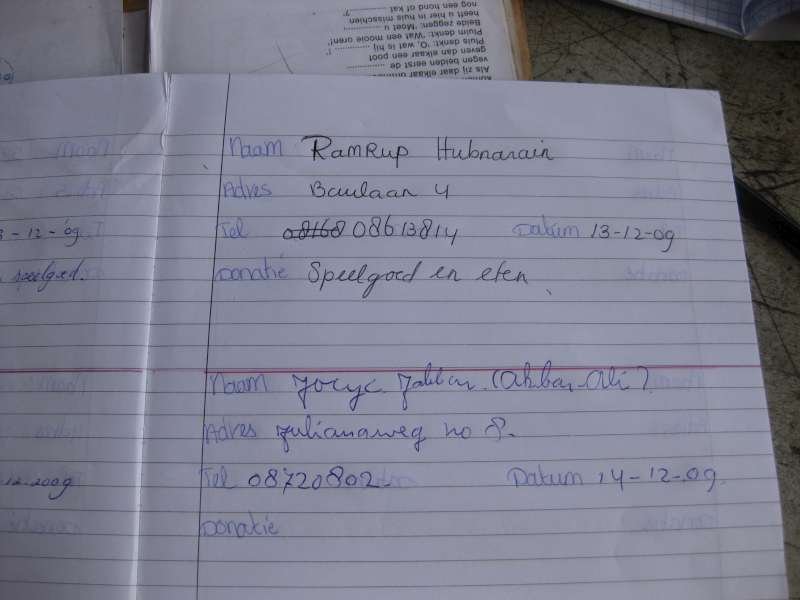 nog een hond of kat ..........?'
heeft u hier in huis misschien
Beide zeggen: 'Moet u ..........
Pluim denkt: 'Wat een mooie oren!
Pluis denkt: 'O, wat is hij .......... !'
geven dan elkaar een poot
vegen beidel eerst de ..........
Als zij daar elkaar
Naam Ramrup Hubnarain
Adres Baulaan 4
3-12-09 Tel 08168 08613814 Datum 13-12-09
speelgoed. Donatie Speelgoed en eten
Naam Joryc Jabbar (Akbar-Ali)
Adres Julianaweg no 8.
12-2009 Tel 08720802 Datum 14-12-09
Donatie